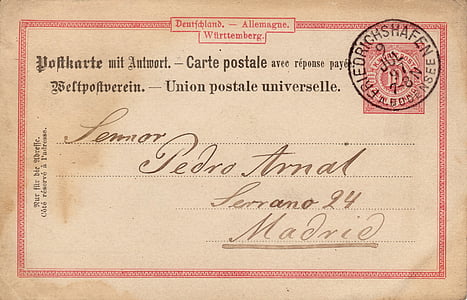 Deutschland. – Allemagne.
Württemberg.
Postkarte mit Antwort. – Carte postale avec réponse payée
Weltpostverein. – Union postale universelle.
FRIEDRICHSHAFEN
9
JUL
A. BODENSEE
Nur für die Adresse.
Côté réservé à l'adresse.
Sennor
Pedro Arnal
Serrano 24
Madrid